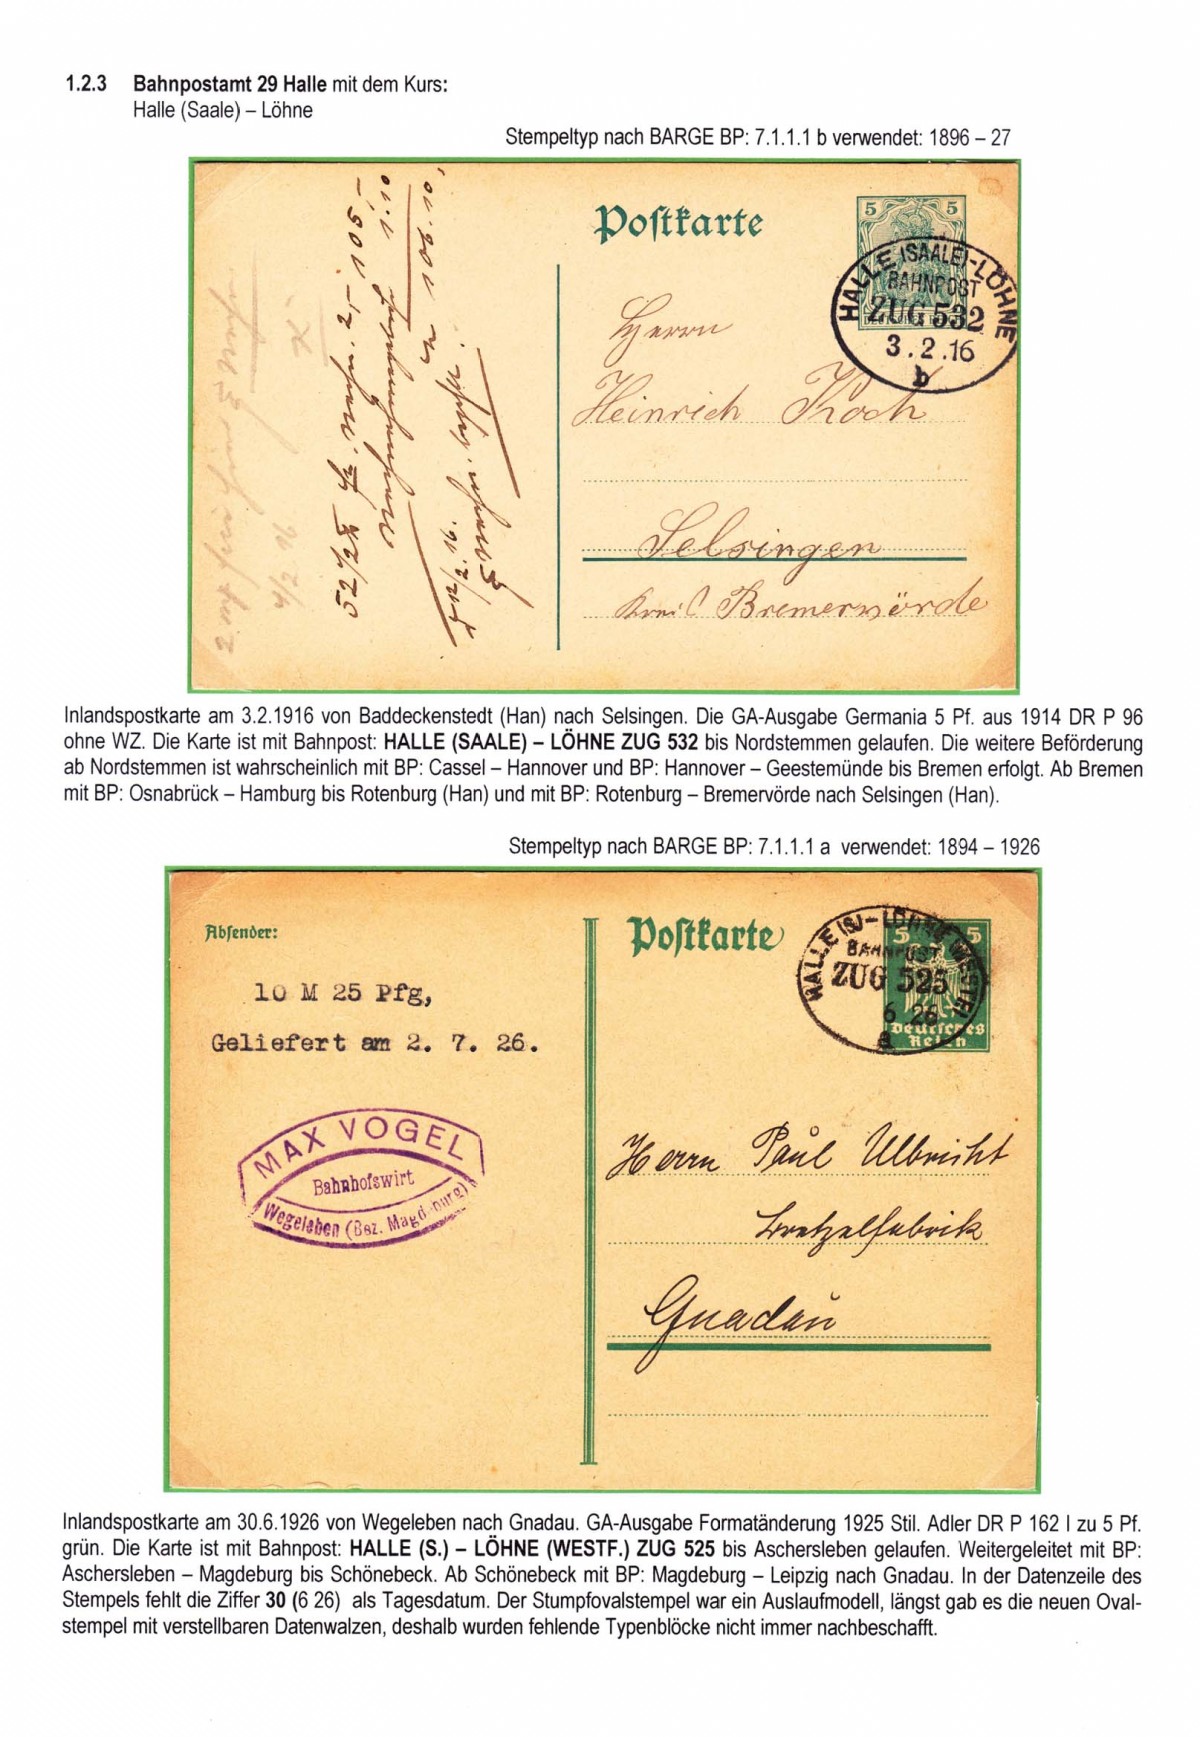 1.2.3 Bahnpostamt 29 Halle mit dem Kurs:
Halle (Saale) – Löhne
Stempeltyp nach BARGE BP: 7.1.1.1 b verwendet: 1896 – 27
Postkarte
5 5
HALLE (SAALE)-LÖHNE
BAHNPOST
ZUG 532
3.2.16
b
Herrn
Heinrich Koch
Selsingen
Kreis Bremervörde
Inlandspostkarte am 3.2.1916 von Baddeckenstedt (Han) nach Selsingen. Die GA-Ausgabe Germania 5 Pf. aus 1914 DR P 96
ohne WZ. Die Karte ist mit Bahnpost: HALLE (SAALE) – LÖHNE ZUG 532 bis Nordstemmen gelaufen. Die weitere Beförderung
ab Nordstemmen ist wahrscheinlich mit BP: Cassel – Hannover und BP: Hannover – Geestemünde bis Bremen erfolgt. Ab Bremen
mit BP: Osnabrück – Hamburg bis Rotenburg (Han) und mit BP: Rotenburg – Bremervörde nach Selsingen (Han).
Stempeltyp nach BARGE BP: 7.1.1.1 a verwendet: 1894 – 1926
Absender:
Postkarte
10 M 25 Pfg,
Geliefert am 2. 7. 26.
MAX VOGEL
Bahnhofswirt
Wegeleben (Bez. Magdeburg)
5 5
HALLE (S)-LÖHNE (WESTF)
BAHNPOST
ZUG 525
6 26
a
Deutsches
Reich
Herrn Paul Ulbricht
Bretzelfabrik
Gnadau
Inlandspostkarte am 30.6.1926 von Wegeleben nach Gnadau. GA-Ausgabe Formatänderung 1925 Stil. Adler DR P 162 I zu 5 Pf.
grün. Die Karte ist mit Bahnpost: HALLE (S.) – LÖHNE (WESTF.) ZUG 525 bis Aschersleben gelaufen. Weitergeleitet mit BP:
Aschersleben – Magdeburg bis Schönebeck. Ab Schönebeck mit BP: Magdeburg – Leipzig nach Gnadau. In der Datenzeile des
Stempels fehlt die Ziffer 30 (6 26) als Tagesdatum. Der Stumpfovalstempel war ein Auslaufmodell, längst gab es die neuen Oval-
stempel mit verstellbaren Datenwalzen, deshalb wurden fehlende Typenblöcke nicht immer nachbeschafft.